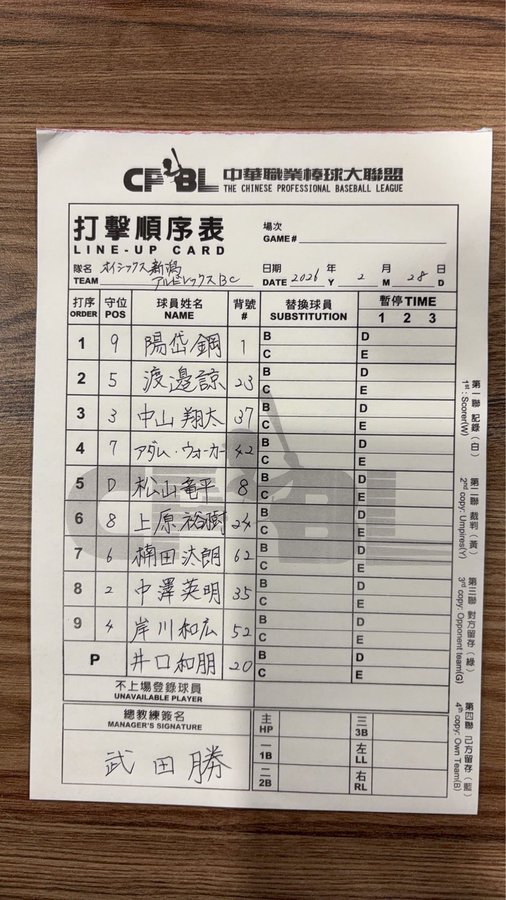 CPBL 中華職業棒球大聯盟
THE CHINESE PROFESSIONAL BASEBALL LEAGUE
打擊順序表
LINE-UP CARD
場次
GAME #
隊名 オイシックス新潟
TEAM アルビレックスBC
日期 年 月 日
DATE 2026 Y 2 M 28 D
打序 守位 球員姓名 背號 替換球員 暫停TIME
ORDER POS NAME # SUBSTITUTION 1 2 3
1 9 陽岱鋼 1 B D
C E
2 5 渡邉諒 23 B D
C E
3 3 中山翔太 37 B D
C E
4 7 アダム・ウォーカー 42 B D
C E
5 D 松山竜平 8 B D
C E
6 8 上原裕樹 24 B D
C E
7 6 楠田汰朗 62 B D
C E
8 2 中澤英明 35 B D
C E
9 4 岸川和広 52 B D
C E
P 井口和朋 20 B D
C E
不上場登錄球員
UNAVAILABLE PLAYER
總教練簽名
MANAGER'S SIGNATURE
武田勝
主 三
HP 3B
一 左
1B LL
二 右
2B RL
第一聯 記錄(白)
1st : Scorer(W)
第二聯 裁判(黃)
2nd copy: Umpires(Y)
第三聯 對方留存(綠)
3rd copy: Opponent team(G)
第四聯 己方留存(藍)
4th copy: Own Team(B)
CPBL